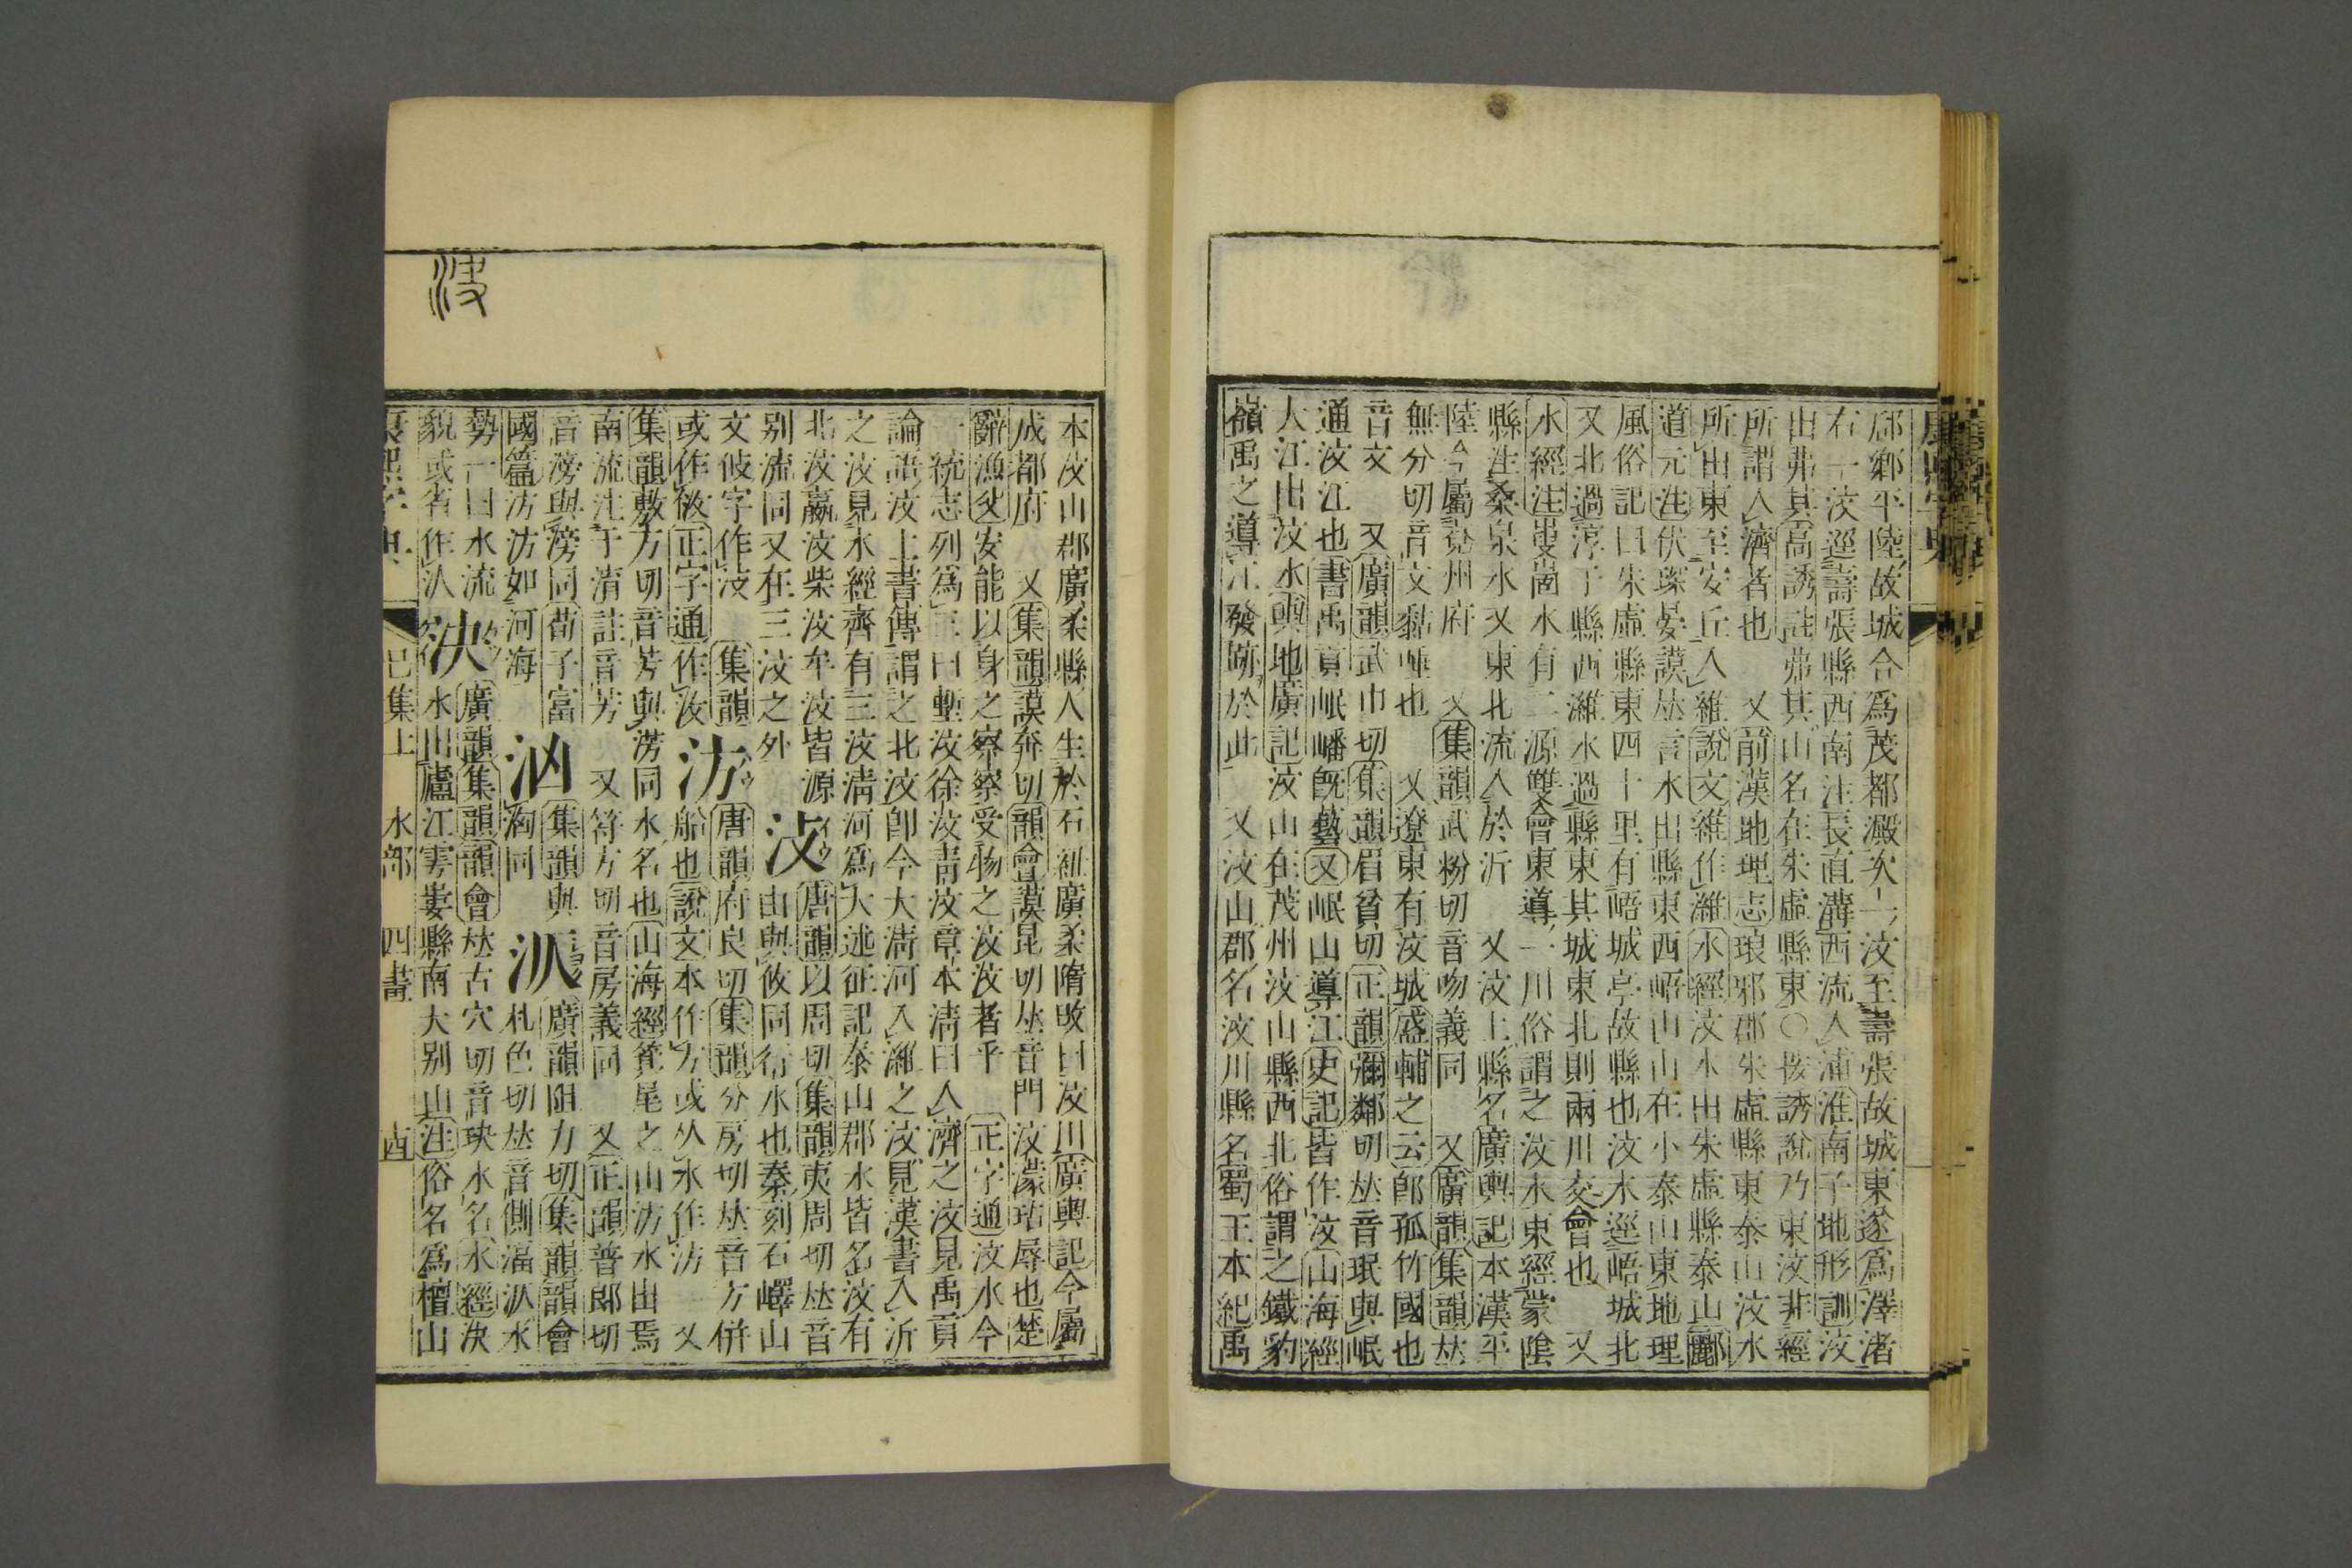 郈鄉平陸故城合爲茂都澱次一汶至壽張故城東遂爲澤渚
右一汶逕壽張縣西南注長直溝西流入浦淮南子地形訓汶
出弗其高誘註弗其山名在朱虛縣東〇按誘說乃東汶非經
所謂入濟者也 又前漢地理志琅邪郡朱虛縣東泰山汶水
所出東至安丘入維說文維作濰水經汶水出朱虛縣泰山酈
道元注伏琛晏謨𠀤言水出縣東西峿山山在小泰山東地理
風俗記曰朱虛縣東四十里有峿城亭故縣也汶水逕峿城北
又北過淳于縣西濰水過縣東其城東北則兩川交會也 又
水經注𡸁崮水有二源雙會東導一川俗謂之汶水東經蒙陰
縣注桑泉水又東北流入於沂 又汶上縣名廣輿記本漢平
陸今屬兗州府 又集韻武粉切音吻義同 又廣韻集韻𠀤
無分切音文黏唾也 又遼東有汶城盛輔之云卽孤竹國也
音文 又廣韻武巾切集韻眉貧切正韻彌鄰切𠀤音珉與岷
通汶江也書禹貢岷嶓旣藝又岷山導江史記皆作汶山海經
大江出汶水輿地廣記汶山在茂州汶山縣西北俗謂之鐵豹
嶺禹之導江發跡於此 又汶山郡名汶川縣名蜀王本紀禹
本汶山郡廣柔縣人生於石紐廣柔隋改曰汶川廣輿記今屬
成都府 又集韻謨奔切韻會謨昆切𠀤音門汶濛玷辱也楚
辭漁父安能以身之察察受物之汶汶者乎 正字通汶水今
一統志列爲三曰塹汶徐汶靑汶章本淸曰入濟之汶見禹貢
論語汶上書傳謂之北汶卽今大淸河入濰之汶見漢書入沂
之汶見水經齊有三汶淸河爲大述征記泰山郡水皆名汶有
北汶嬴汶柴汶牟汶皆源
别流同又在三汶之外
汥
唐韻以周切集韻夷周切𠀤音
由與攸同行水也秦刻石嶧山
文攸字作汥 集韻
或作㳊正字通作汝
汸
唐韻府良切集韻分房切𠀤音方倂
船也說文本作方或从水作汸 又
集韻敷方切音芳與淓同水名也山海經箕尾之山汸水出焉
南流注于淯註音芳 又符方切音房義同 又正韻普郞切
音滂與滂同荀子富
國篇汸汸如河海
汹
集韻與
洶同
㲸
廣韻阻力切集韻韻會
札色切𠀤音側㴙㲸水
勢一曰水流
貌或省作㲸
泬
廣韻集韻韻會𠀤古穴切音玦水名水經泬
水出廬江雩婁縣南大別山注俗名爲檀山
康熙字典 巳集上 水部 四畫